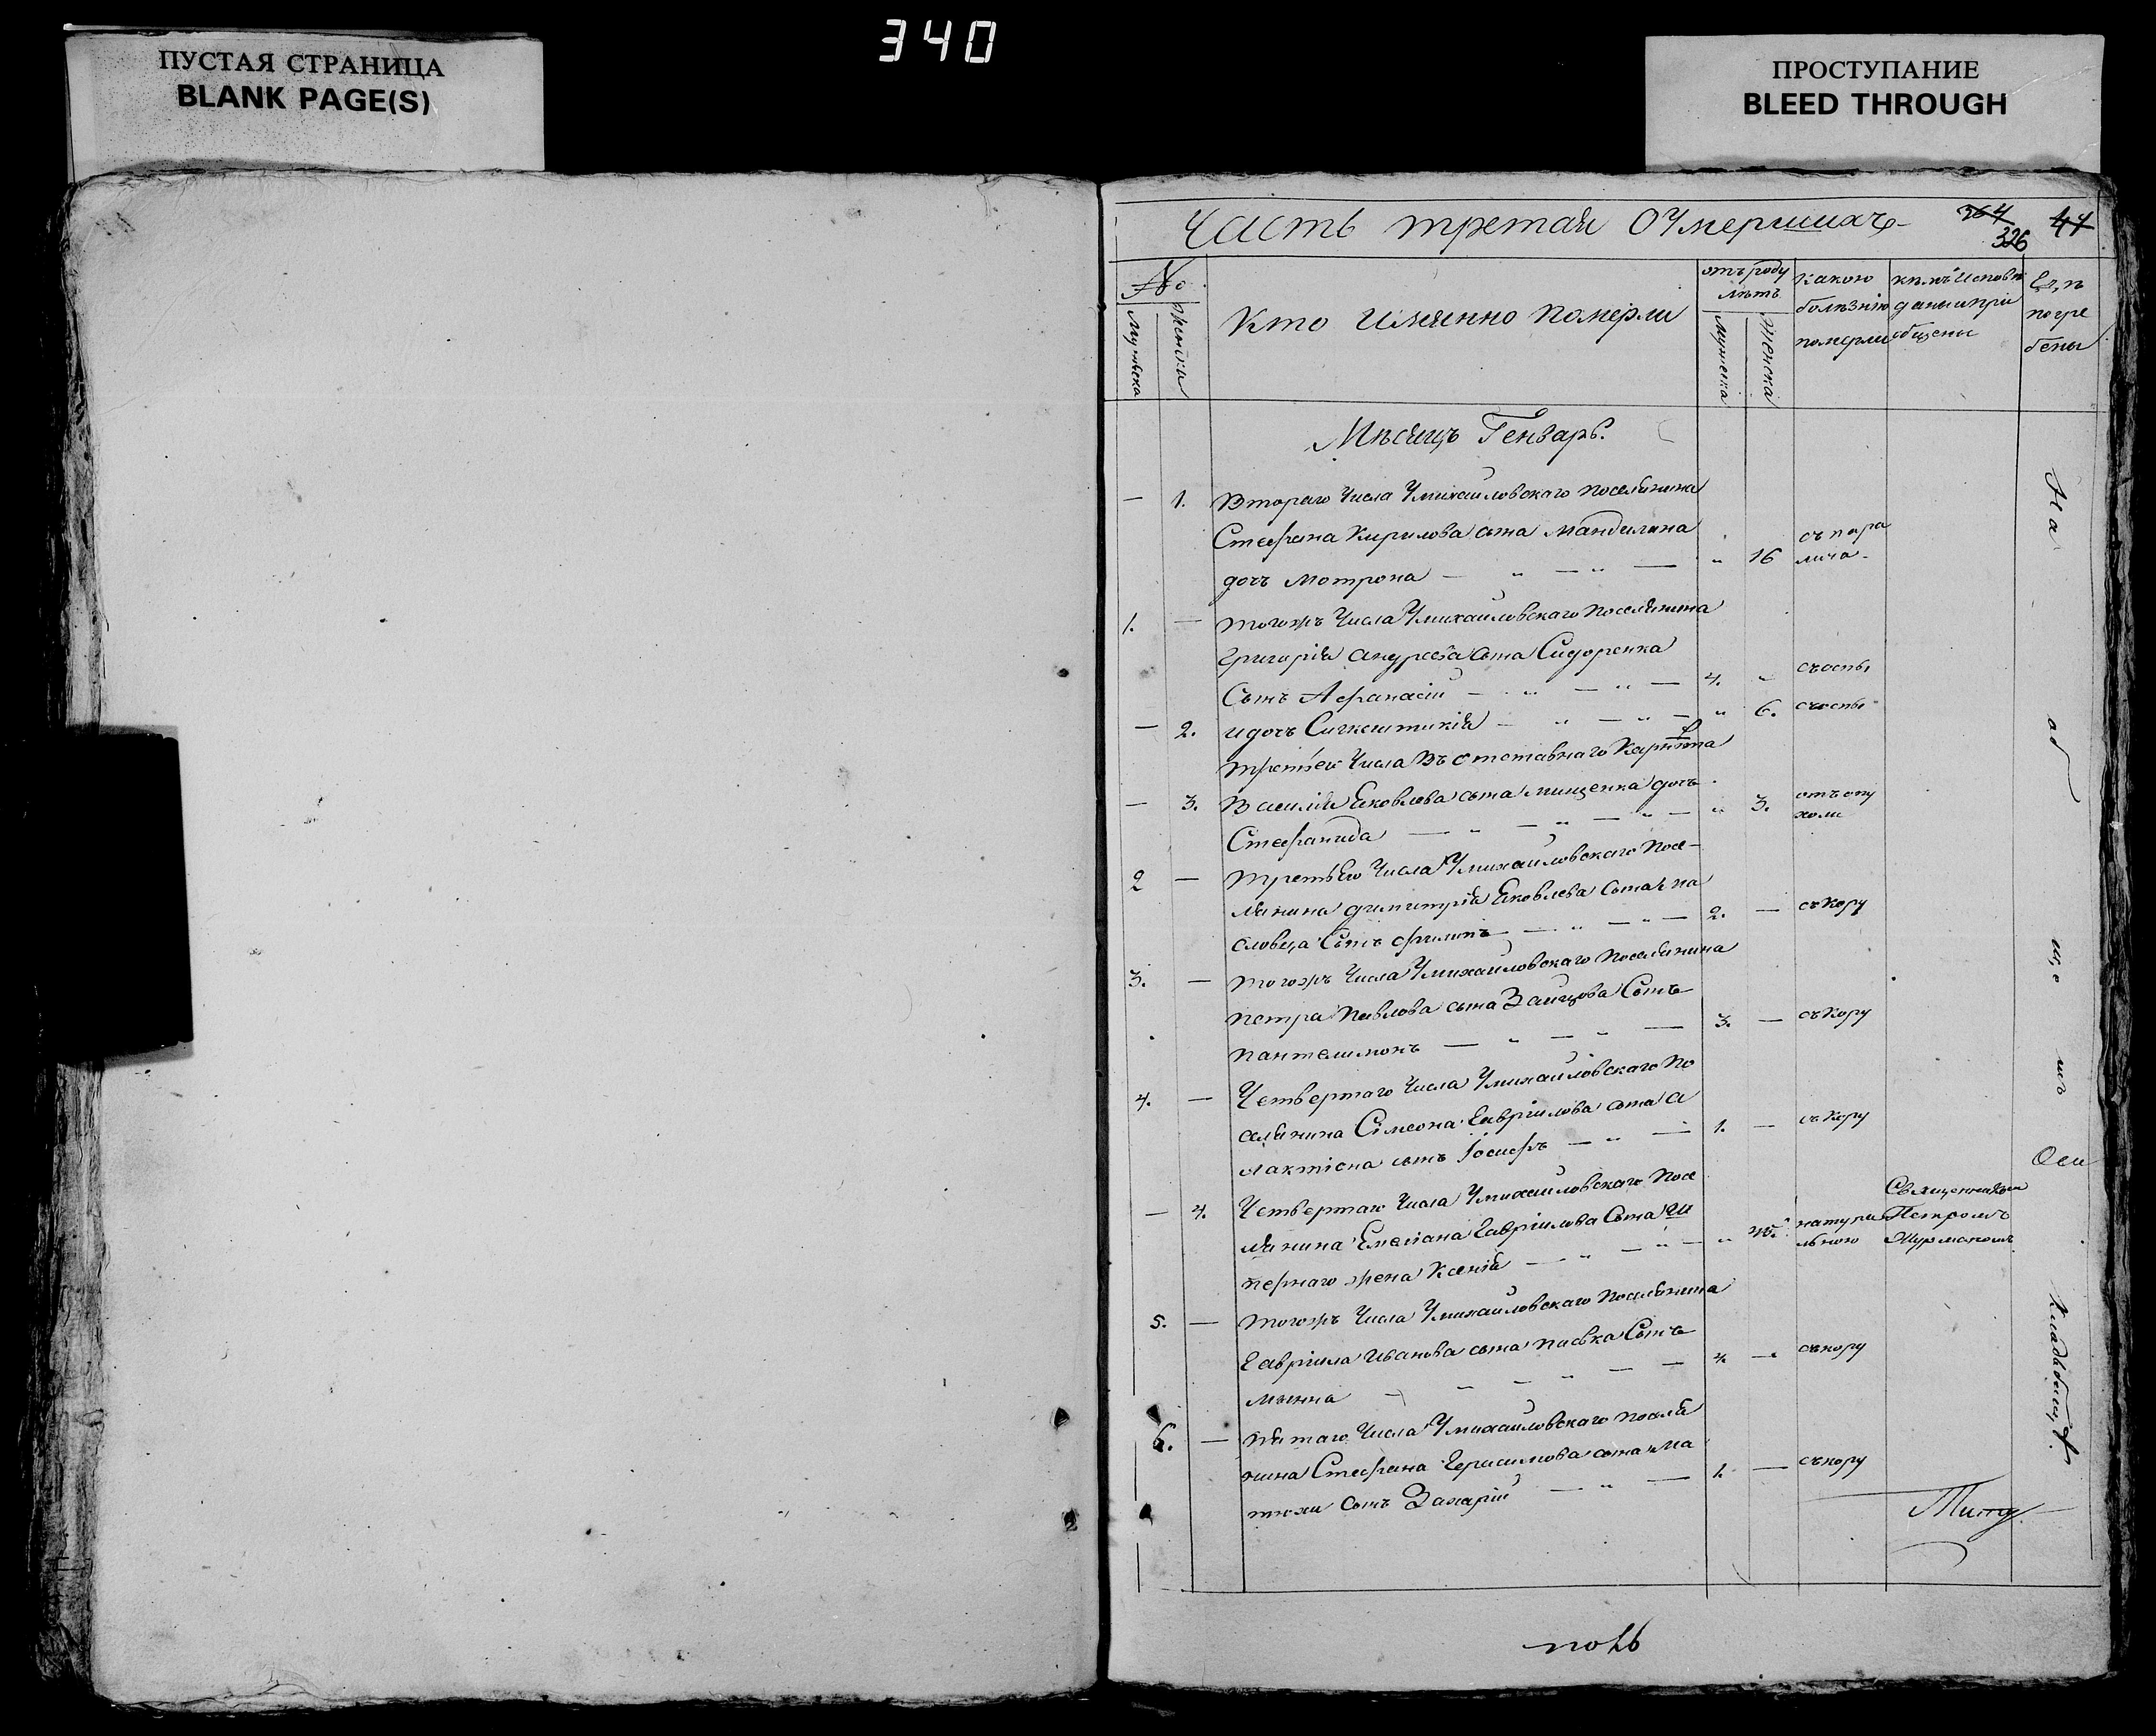 340
ПУСТАЯ СТРАНИЦА
BLANK PAGE(S)
ПРОСТУПАНИЕ
BLEED THROUGH
Часть третая Оумершихъ
364
326
44
№
Мужеска
Женска
Кто имянно померли
отъ роду
лѣтъ
Мужеска
Женска
Какою
болѣзнію
померли
кѣмъ исповѣ
даны и прі
общены
Гдѣ
погре
бены
Мѣсяцъ Генварь.
— 1. Втораго Числа Умихайловскаго поселянина
Стефана Кирилова сына
дочь Мотрона — „ — „ — „ 16 съ пара
лича
1. — Тогожъ Числа Умихайловскаго Поселянина
Григорія Андреева сына Сидоренка
Сынъ Афанасій — „ — „ — 4. „ съ оспы
— 2. и дочь — „ — „ — „ 6. съ оспы
Третьего Числа въ отставнаго
— 3. Василія Яковлева сына Мищенка дочь
Стефанида — „ — „ — „ — „ 3. отъ опу
холи
2 — Третьего Числа Умихайловскаго Посе-
лянина Димитрія Яковлева Сына
Сынъ Филипъ — „ — „ — 2. — съ Кору
3. — Тогожъ Числа Умихайловскаго Поселянина
Петра Павлова сына Зайцова Сынъ
Пантелимонъ — „ — „ — 3. — съ Кору
4. — Четвертаго Числа Умихайловскаго По
селянина Сімеона Гавріилова сына а
лактіона сынъ Іосифъ — „ — 1. — съ Кору
— 4. Четвертаго Числа Умихайловскаго Посе
лянина Емеліана Гавріилова Сына
жена Ксенія — „ — „ — „ натура
льною
Священникомъ
Петромъ
5. — Тогожъ Числа Умихайловскаго Поселянина
Гавріила Иванова сына Сынъ
Минна — „ — „ — 4. — съ кору
6. — Пятаго Числа Умихайловскаго Поселя
нина Стефана Герасимова сына ма
тюхи сынъ Захарій — „ — 1. — съ кору
На
об
ще
мъ
Кладбищѣ.